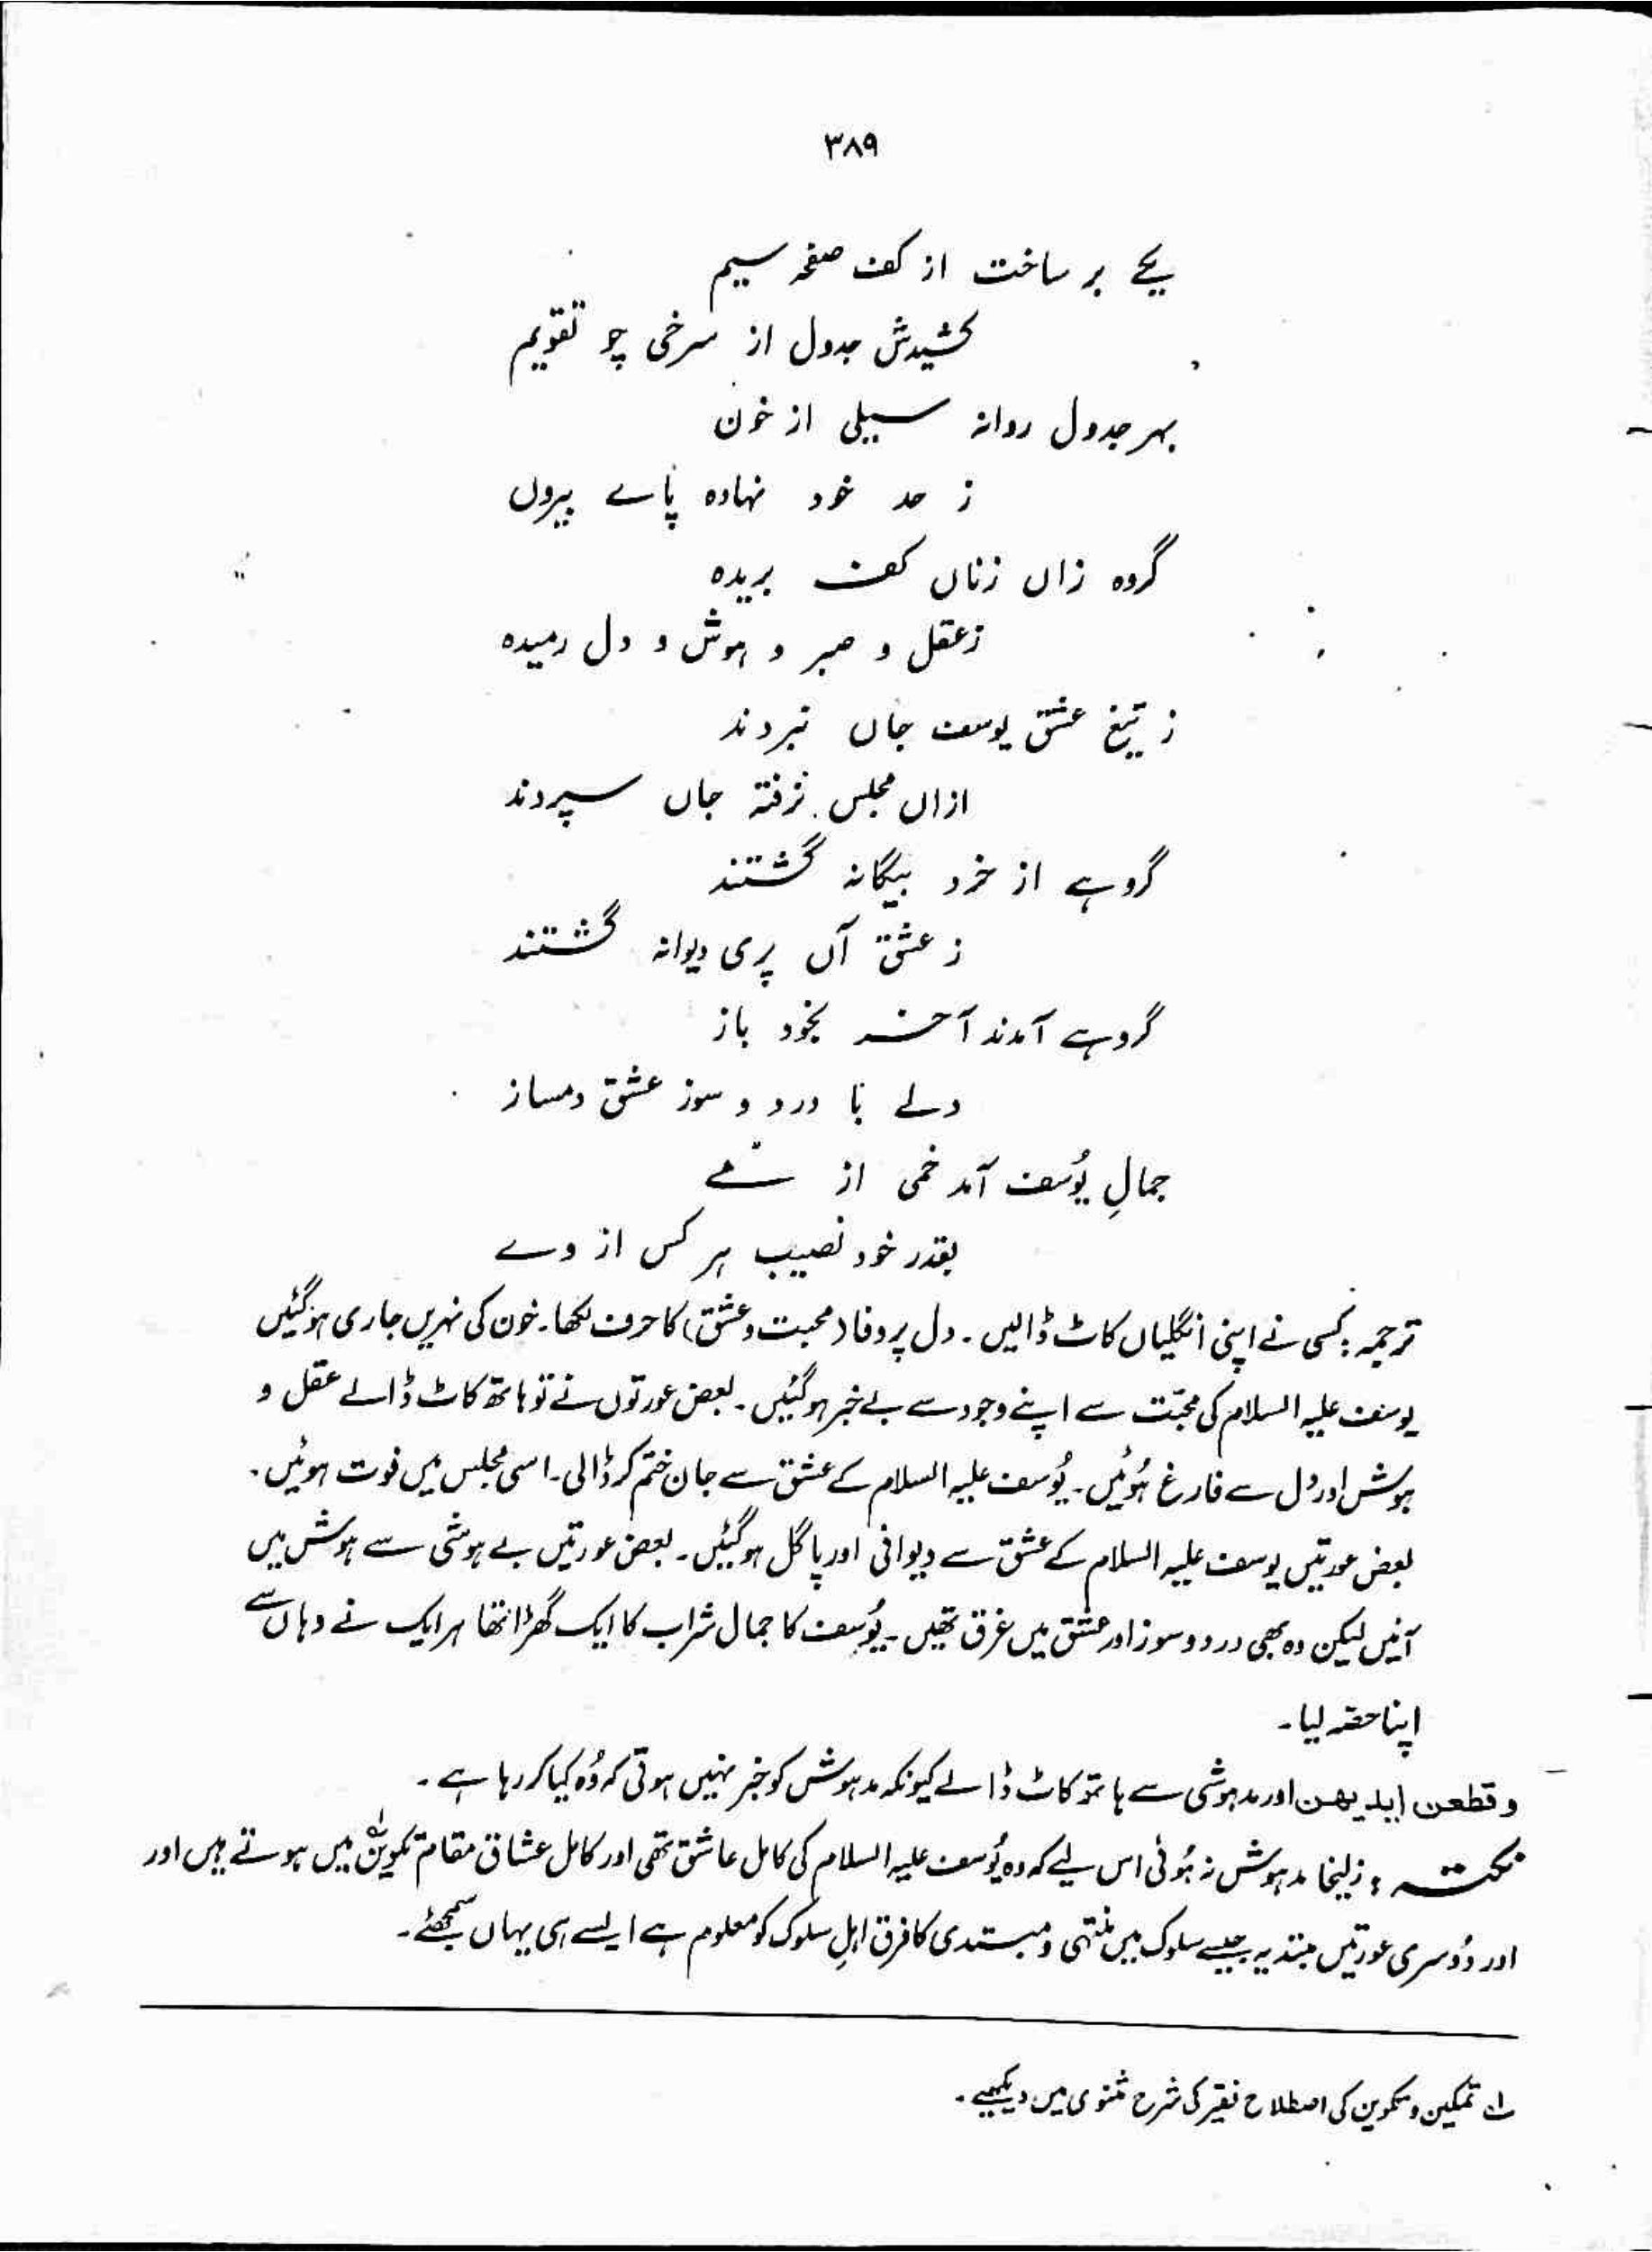 ۳۸۹
یکے بر ساخت از کف صفحہ سیم
کشیدش جدول از سرخی چو تقویم
بہر جدول روانہ سیلی از خون
ز حد خود نہادہ پاے بیروں
گروہ زاں زناں کف بریدہ
ز عقل و صبر و ہوش و دل رمیدہ
ز تیغ عشق یوسف جاں نبردند
ازاں مجلس نرفتہ جاں سپردند
گروہے از خرد بیگانہ گشتند
ز عشق آں پری دیوانہ گشتند
گروہے آمدند آخر بخود باز
ولے با درد و سوز عشق دمساز
جمالِ یُوسف آمد خمی از مے
بقدر خود نصیب ہر کس از وے
ترجمہ : کسی نے اپنی انگلیاں کاٹ ڈالیں ۔ دل پر وفا (محبت و عشق) کا حرف لکھا۔ خون کی نہریں جاری ہوگئیں
یوسف علیہ السلام کی محبّت سے اپنے وجود سے بے خبر ہوگئیں ۔ بعض عورتوں نے تو ہاتھ کاٹ ڈالے عقل و
ہوش اور دل سے فارغ ہُوئیں ۔ یُوسف علیہ السلام کے عشق سے جان ختم کر ڈالی ۔ اسی مجلس میں فوت ہوئیں ۔
بعض عورتیں یوسف علیہ السلام کے عشق سے دیوانی اور پاگل ہوگئیں ۔ بعض عورتیں بے ہوشی سے ہوش میں
آئیں لیکن وہ بھی درد و سوز اور عشق میں غرق تھیں ۔ یُوسف کا جمال شراب کا ایک گھڑا تھا ہر ایک نے وہاں سے
اپنا حصّہ لیا ۔
و قطعن ایدیھن اور مدہوشی سے ہاتھ کاٹ ڈالے کیونکہ مدہوش کو خبر نہیں ہوتی کہ وُہ کیا کر رہا ہے ۔
نکتہ : زلیخا مدہوش نہ ہُوئی اس لیے کہ وہ یُوسف علیہ السلام کی کامل عاشق تھی اور کامل عشاق مقام تکوین لہ میں ہوتے ہیں اور
اور دُوسری عورتیں مبتدیہ جیسے سلوک میں منتہی و مبتدی کا فرق اہلِ سلوک کو معلوم ہے ایسے ہی یہاں سمجھئے ۔
لہ تمکین و تکوین کی اصطلاح فقیر کی شرح مثنوی میں دیکھیے ۔